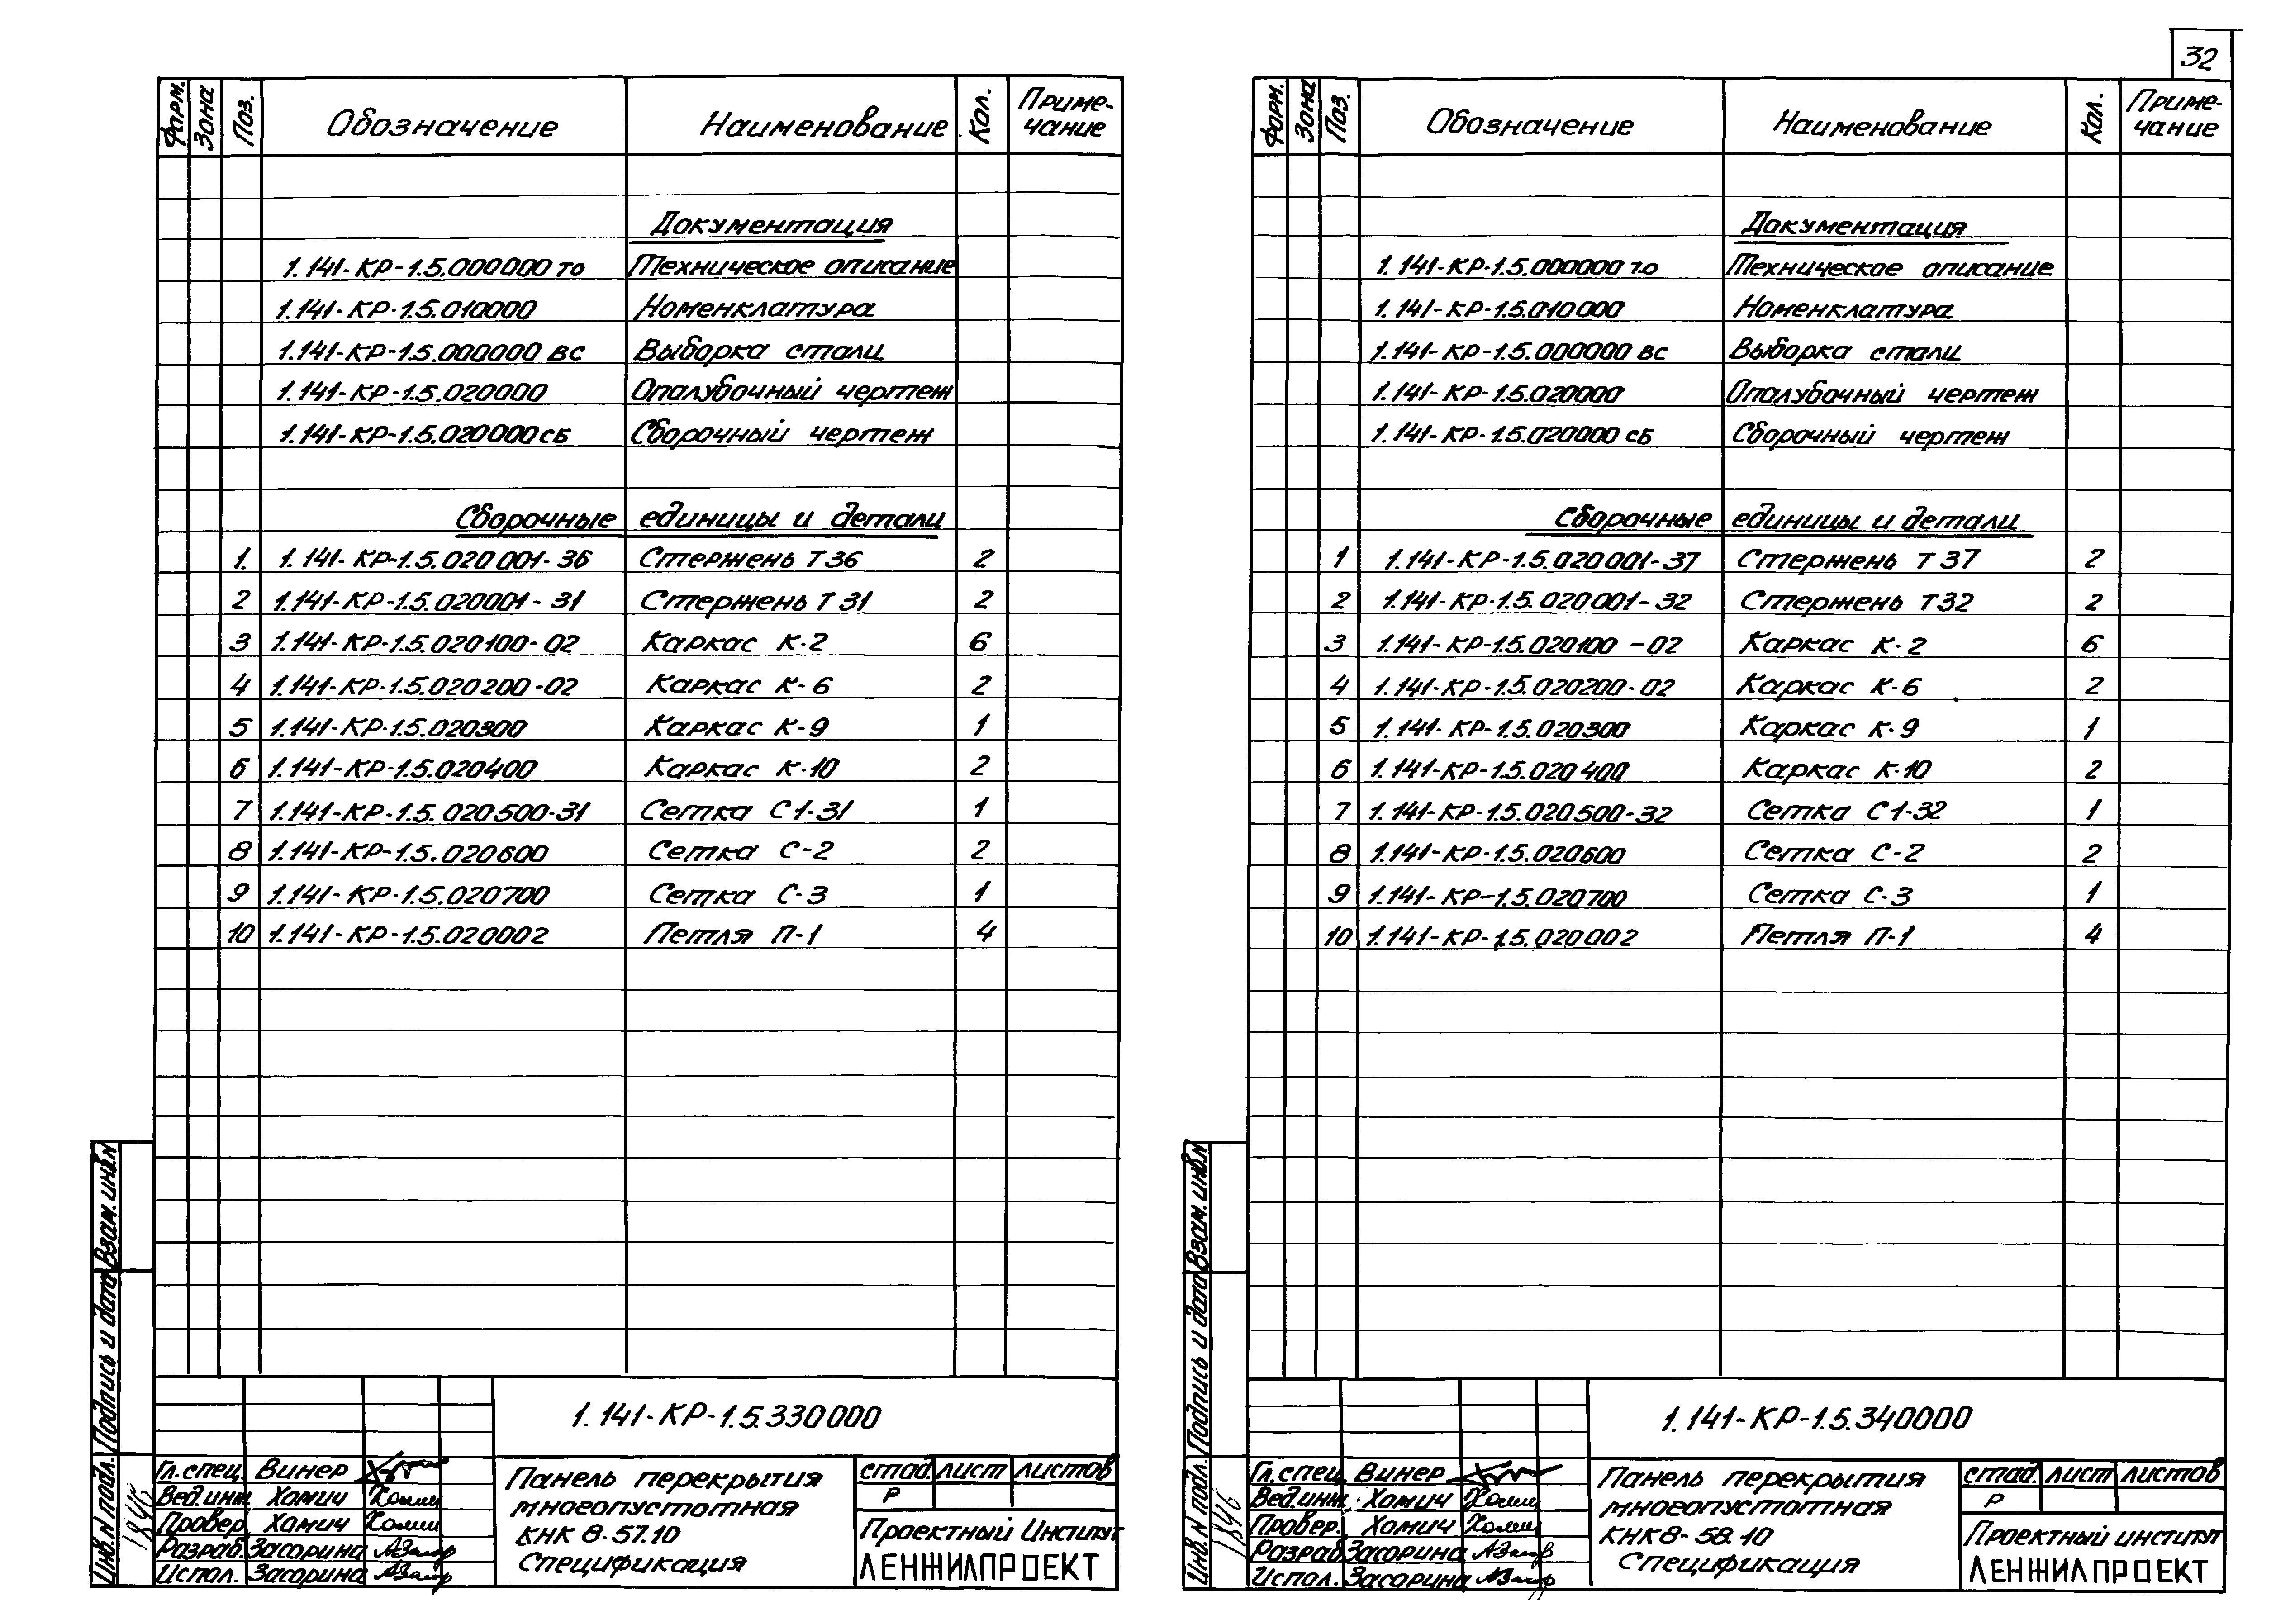 32
Форм. Зона Поз. Обозначение Наименование Кол. Приме-
чание
Документация
1.141-КР-1.5.000000 ТО Техническое описание
1.141-КР-1.5.010000 Номенклатура
1.141-КР-1.5.000000 ВС Выборка стали
1.141-КР-1.5.020000 Опалубочный чертеж
1.141-КР-1.5.020000 СБ Сборочный чертеж
Сборочные единицы и детали
1. 1.141-КР-1.5.020001-36 Стержень Т36 2
2 1.141-КР-1.5.020001-31 Стержень Т31 2
3 1.141-КР-1.5.020100-02 Каркас К-2 6
4 1.141-КР-1.5.020200-02 Каркас К-6 2
5 1.141-КР-1.5.020300 Каркас К-9 1
6 1.141-КР-1.5.020400 Каркас К-10 2
7 1.141-КР-1.5.020500-31 Сетка С1-31 1
8 1.141-КР-1.5.020600 Сетка С-2 2
9 1.141-КР-1.5.020700 Сетка С-3 1
10 1.141-КР-1.5.020002 Петля П-1 4
Взам. инв.N
Подпись и дата
Инв. N подл.
1846
1.141-КР-1.5.330000
Гл. спец. Винер
Вед. инж. Хомич
Провер. Хомич
Разраб. Засорина
Испол. Засорина
Панель перекрытия
многопустотная
КНК 8-57.10
Спецификация
стад лист листов
Р
Проектный Институт
ЛЕНЖИЛПРОЕКТ
Форм. Зона Поз. Обозначение Наименование Кол. Приме-
чание
Документация
1.141-КР-1.5.000000 ТО Техническое описание
1.141-КР-1.5.010000 Номенклатура
1.141-КР-1.5.000000 ВС Выборка стали
1.141-КР-1.5.020000 Опалубочный чертеж
1.141-КР-1.5.020000 СБ Сборочный чертеж
Сборочные единицы и детали
1 1.141-КР-1.5.020001-37 Стержень Т37 2
2 1.141-КР-1.5.020001-32 Стержень Т32 2
3 1.141-КР-1.5.020100-02 Каркас К-2 6
4 1.141-КР-1.5.020200-02 Каркас К-6 2
5 1.141-КР-1.5.020300 Каркас К-9 1
6 1.141-КР-1.5.020400 Каркас К-10 2
7 1.141-КР-1.5.020500-32 Сетка С1-32 1
8 1.141-КР-1.5.020600 Сетка С-2 2
9 1.141-КР-1.5.020700 Сетка С-3 1
10 1.141-КР-1.5.020002 Петля П-1 4
Взам. инв.N
Подпись и дата
Инв. N подл.
1846
1.141-КР-1.5.340000
Гл. спец Винер
Вед. инж. Хомич
Провер. Хомич
Разраб. Засорина
Испол. Засорина
Панель перекрытия
многопустотная
КНК 8-58.10
Спецификация
стад лист листов
Р
Проектный институт
ЛЕНЖИЛПРОЕКТ